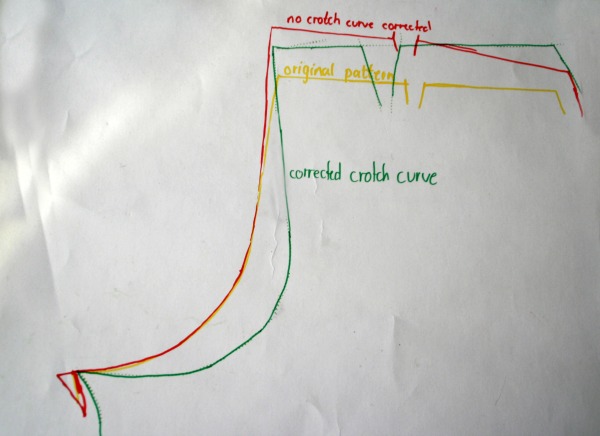 no crotch curve corrected
original pattern
corrected crotch curve